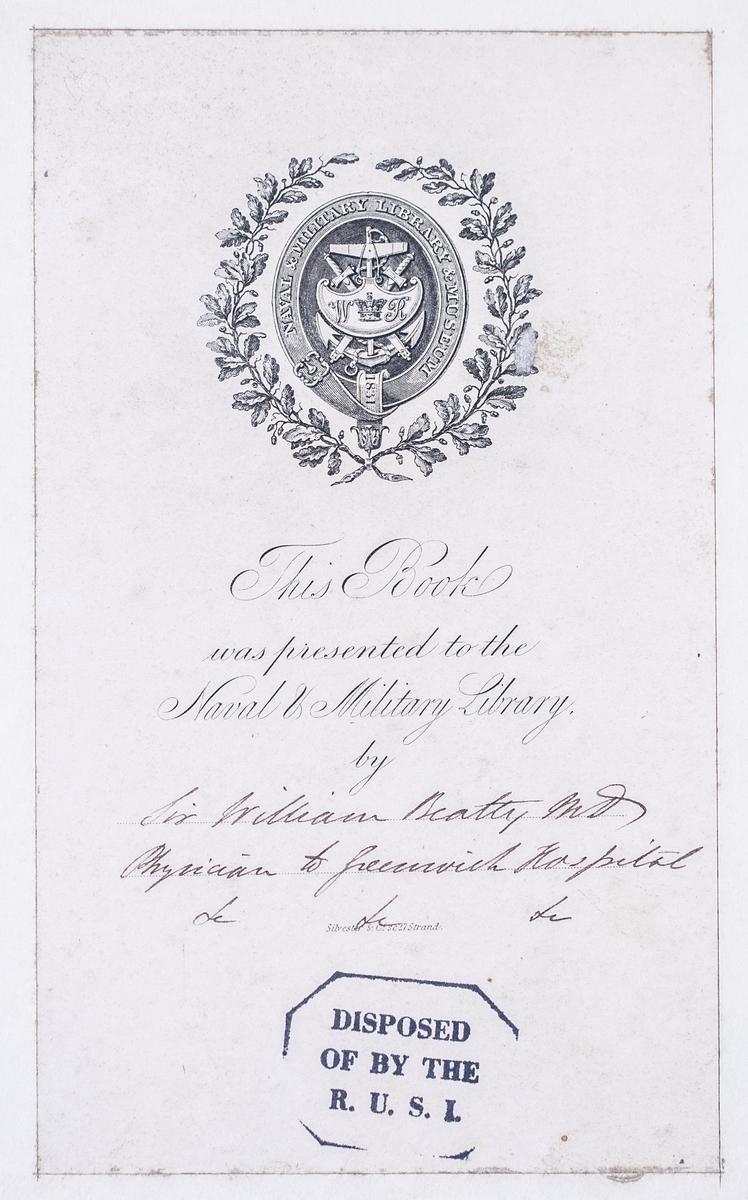 NAVAL & MILITARY LIBRARY & MUSEUM
W R
1831
This Book
was presented to the
Naval & Military Library.
by
Sir William Beatty MD
Physician to Greenwich Hospital
&c &c &c
Silvester & Co. 27 Strand.
DISPOSED
OF BY THE
R. U. S. I.